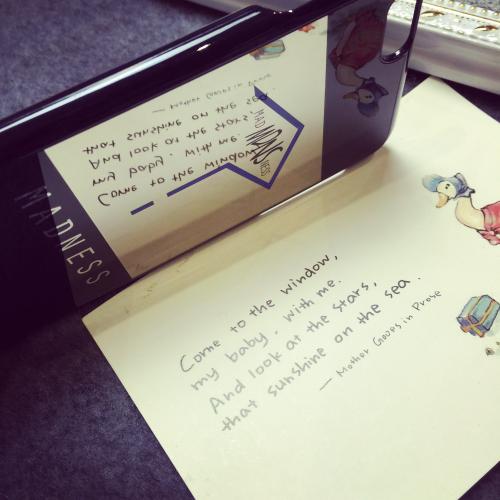 MADNESS
MAD
NESS
Come to the window,
my baby, with me.
And look at the stars,
that sunshine on the sea.
— Mother Goves in Prose